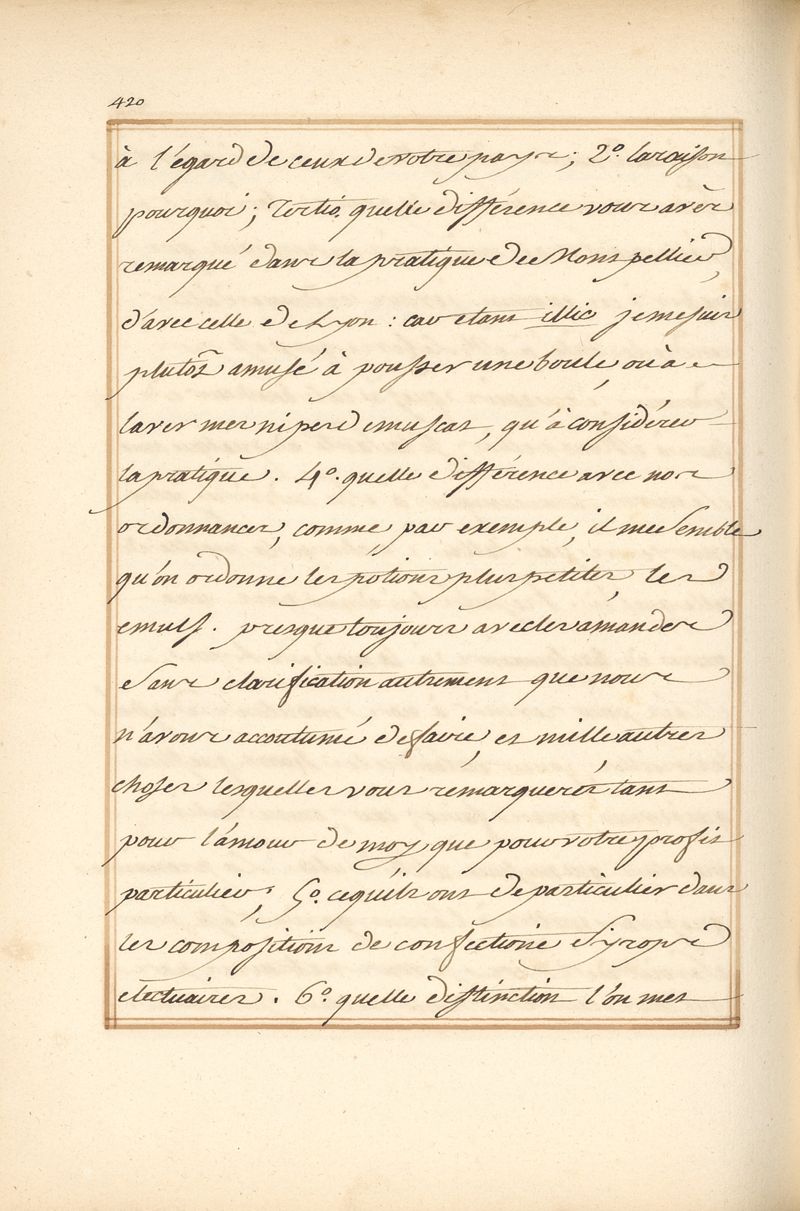 420
à l'égard de ceux de votre pays; 2.º la raison
pourquoi; Tertio. quelle différence vous avés
remarqué dans la pratique de Monspellier,
d'avec celle de Lyon: car etans illic je me suis
plutost amusé à pousser une boule où à
laver mes nipes de muscat, qu'à considérer
la pratique. 4.º quelle différence avec nos
ordonnances, comme, par exemple, il me semble
qu'on ordonne les potions plus petites, les
emuls. presque toujours avec des amandes
sans clarification autrement que nous
n'avons accoutumé de faire, et mille autres
choses lesquelles vous rémarquerés tant
pour l'amour de moy que pour votre profit
particulier; 5.º ce qu'ils ont de particulier dans
les compositions de confections Syrops
electuaires. 6.º quelle distinction l'on met